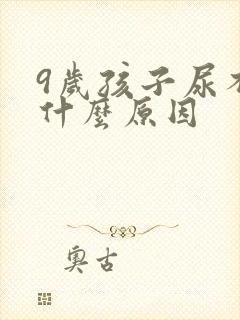 9歲孩子尿
什麼原因
奧古